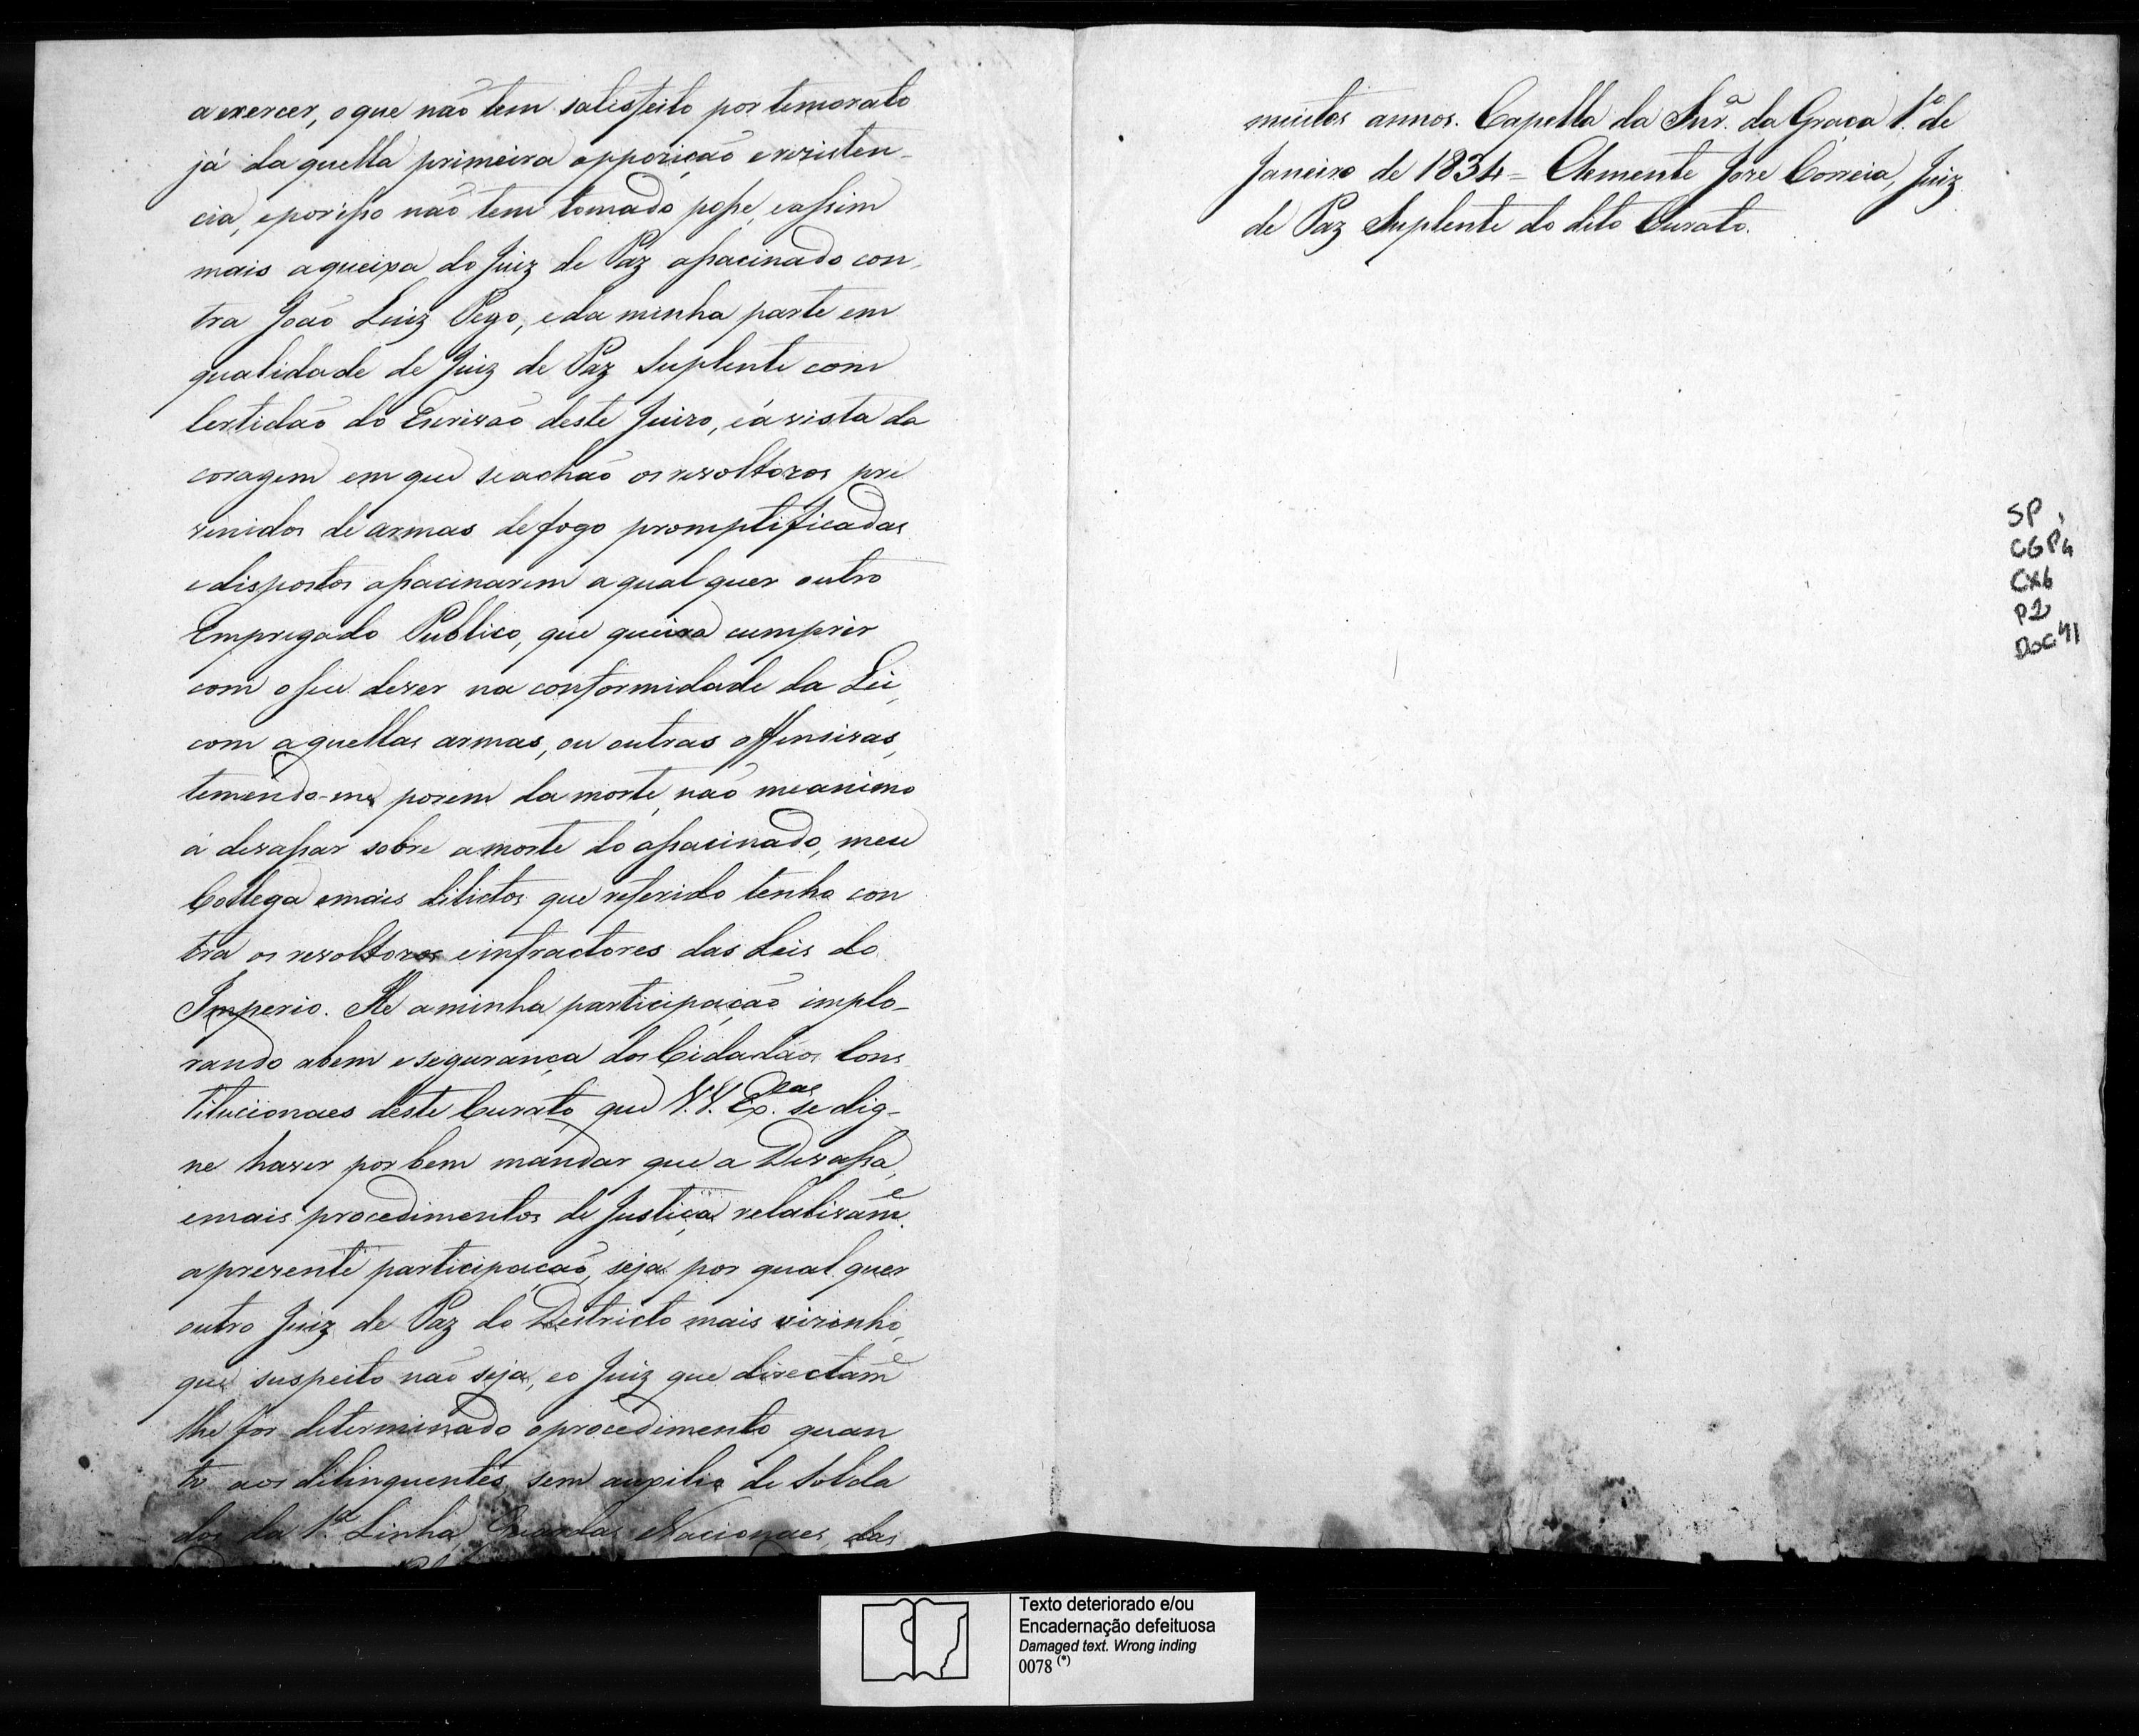 a exercer, o que não tem satisfeito por temorato
já daquella primeira oppozição e rezisten-
cia, e porisso não tem tomado posse, e assim
mais a queixa do Juiz de Paz assacinado con-
tra João Luiz Pego, e da minha parte em
qualidade de Juiz de Paz Suplente com
Certidão do Escrivão deste Juizo, e á vista da
coragem em que se achão os revoltozos pre
venidos de armas de fogo promptificadas
e dispostos assacinarem a qual quer outro
Empregado Publico, que queira cumprir
com o seu dever na conformidade da Lei,
com aquellas armas, ou outras offensivas,
temendo-me porem da morte, não me animo
á devassar sobre a morte do assacinado, meu
Collega e mais dilictos que referido tenho con
tra os revoltozos e infractores das Leis do
Imperio. He a minha participação implo-
rando a bem e segurança dos Cidadãos Cons
titucionaes deste Curato que V.V. Ex.cas se dig-
ne haver por bem mandar que a Devassa,
e mais procedimentos de Justiça relativam.e
a prezente participação, seja por qual quer
outro Juiz de Paz do Districto mais vizinho,
que suspeito não seja, e o Juiz que directam.e
lhe for determinado o procedimento quan
to aos dilinquentes, sem auxilio de Solda
dos da 1.ª Linha, Guardas Nacionaes, das
muitos annos. Capella da Snr.ª da Graça 1.º de
Janeiro de 1834 = Clemente Joze Correia, Juiz
de Paz Suplente do dito Curato.
SP
CGP4
CX6
P2
Doc 41
Texto deteriorado e/ou
Encadernação defeituosa
Damaged text. Wrong inding
0078 (*)